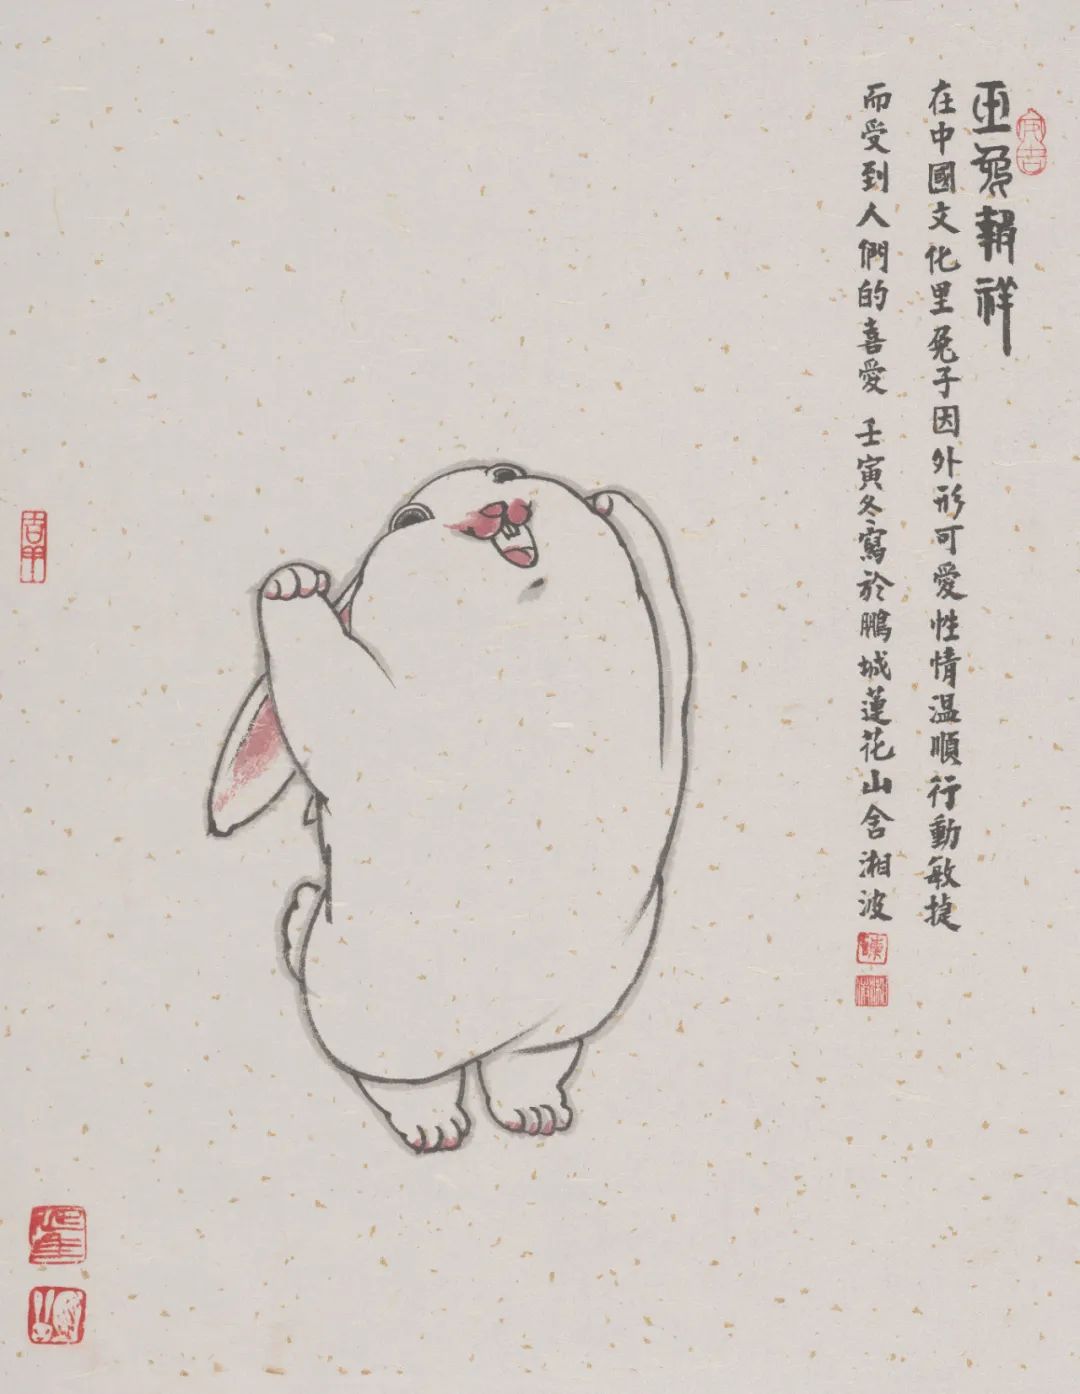 玉兔報祥
在中國文化里兔子因外形可愛性情温順行動敏捷
而受到人們的喜愛 壬寅冬寫於鵬城蓮花山舍湘波